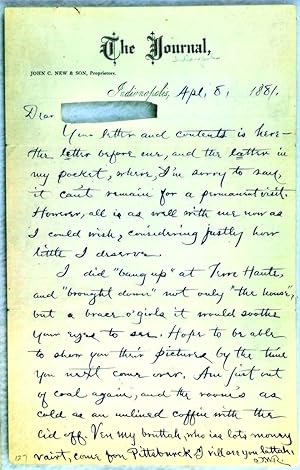 The Journal,
Indianapolis
JOHN C. NEW & SON, Proprietors.
Indianapolis, Apl. 8, 1881.
Dear
Your letter and contents is here—
the letter before me, and the latter in
my pocket, where, I'm sorry to say,
it can't remain for a permanent visit.
However, all is as well with me now as
I could wish, considering justly how
little I deserve.
I did "bang up" at Terre Haute,
and "brought down" not only "the house",
but a brace o' girls it would soothe
your eyes to see. Hope to be able
to show you their pictures by the time
you next come over. Am just out
of coal again, and the room's as
cold as an unlined coffin with the
lid off. Ven my bruttah, who is lots money
vairt, comes fon Pittsburck I vill ose you bittahs
127
J.W.R.